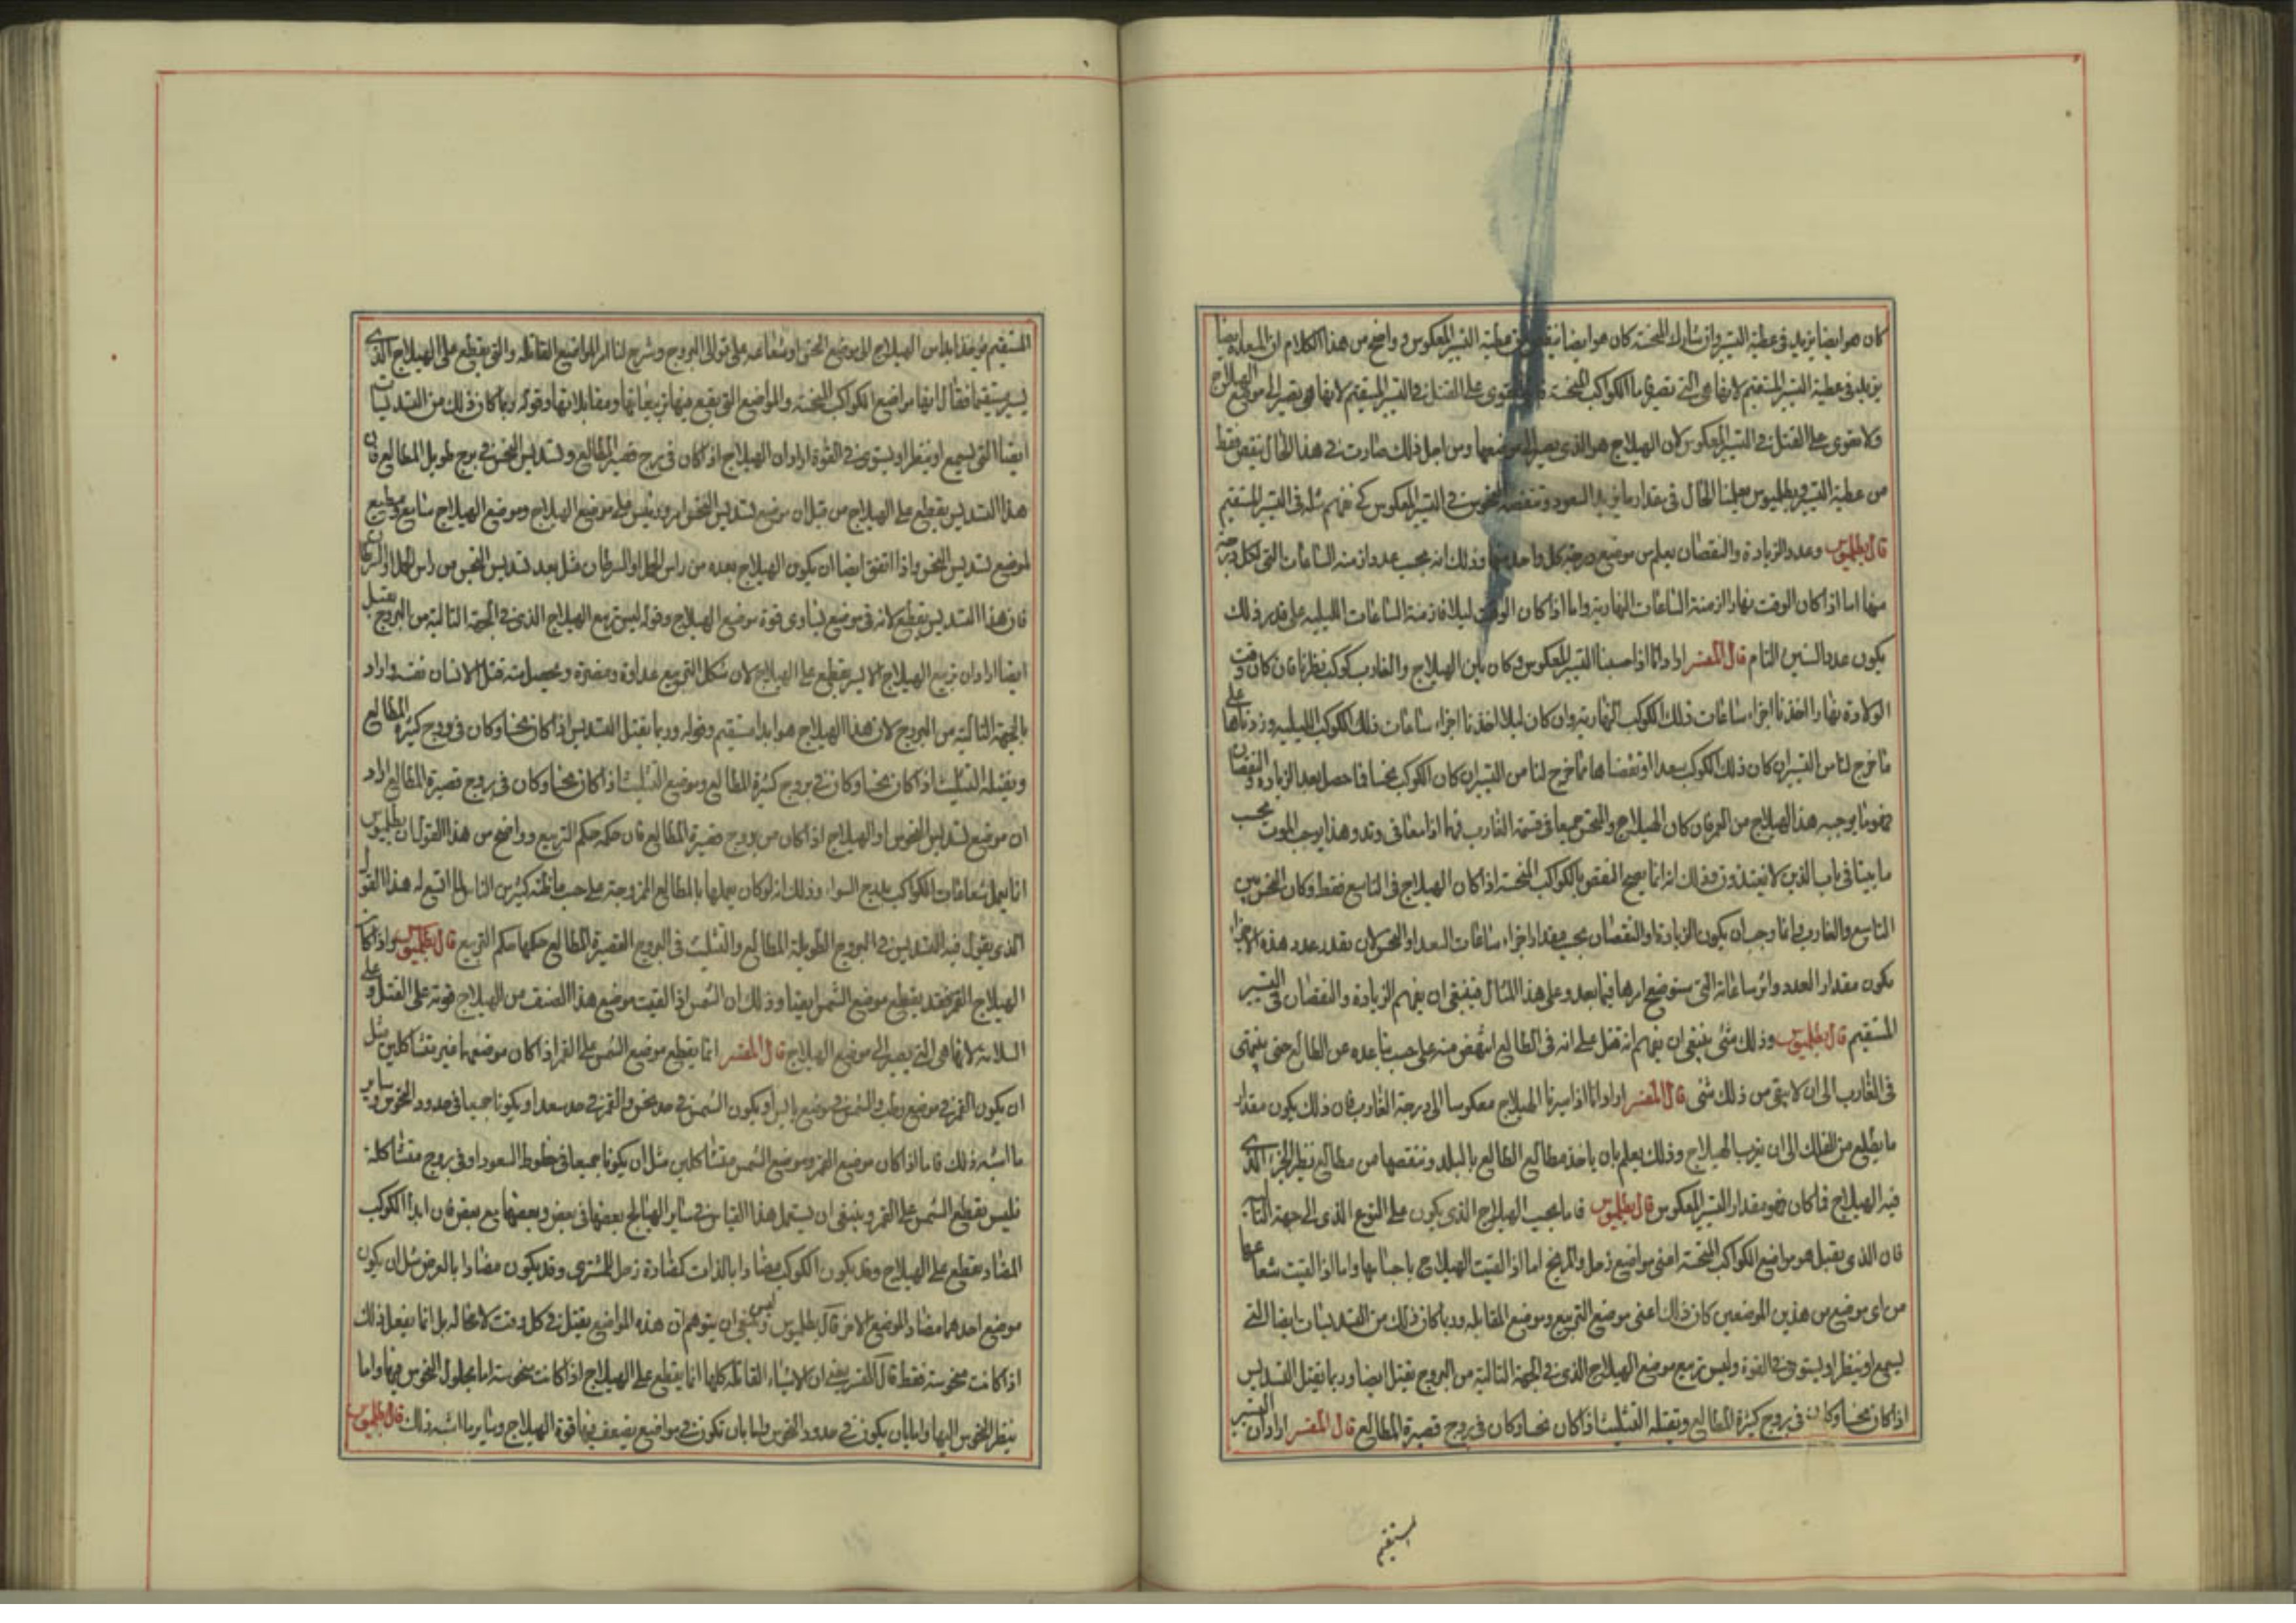 كان هو ايضا يزيد في عطية التسيير وان شارك المنحسة كان هو ايضا ينقص من عطية التسيير المعكوس وواضح من هذا الكلام ان المسعدة ايضا
يزيد في عطية التسيير المستقيم لانها هي التي تصير واما الكواكب المنحسة فانها تقوى على القتل في التسيير المستقيم لانها هي تصير الى موضع الهيلاج
ولا تقوى على القتل في التسيير المعكوس لان الهيلاج هو الذي يصير الى موضعها ومن اجل ذلك صارت في هذا الحال ينقص فقط
من عطية التسيير وبطلميوس يعلمنا الحال في مقدار ما يزيد السعود وتنقصه النحوس في التسيير المعكوس كي نفهم مثله في التسيير المستقيم
قال بطلميوس وعدد الزيادة والنقصان يعلم من موضع درجة كل واحد منها وذلك انه بحسب عدد ازمنة الساعات التي لكل درجة
منها اما اذا كان الوقت نهارا ازمنة الساعات النهارية واما اذا كان الوقت ليلا فازمنة الساعات الليلية على قدر ذلك
يكون عدد السنين التام قال المفسر اراد انا اذا حسبنا التسيير المعكوس وكان بين الهيلاج والغارب كوكب نظرنا فان كان وقت
الولادة نهارا اخذنا اجزاء ساعات ذلك الكوكب النهارية وان كان ليلا اخذنا اجزاء ساعات ذلك الكوكب الليلية وزدناها على
ما خرج لنا من التسيير ان كان ذلك الكوكب سعدا او نقصناها مما خرج لنا من التسيير ان كان الكوكب نحسا فما حصل بعد الزيادة والنقصان
فهو ما يوجبه هذا الهيلاج من العمر فان كان الهيلاج والنحس جميعا في قسمة الغارب فهما اذا معا في وتد وهذا يوجب الموت بحسب
ما بينا في باب الذين لا يغتذون وذلك انه انما يصح النقص بالكواكب المنحسة اذا كان الهيلاج في التاسع فقط وكان النحس بين
التاسع والغارب وانما وجب ان يكون الزيادة او النقصان بحسب مقدار اجزاء ساعات السعد او النحس لان بقدر عدد هذه الاجزاء
يكون مقدار العدد وازمن ساعاته التي سنوضح امرها فيما بعد وعلى هذا المثال فينبغي ان يفهم الزيادة والنقصان في التسيير
المستقيم قال بطلميوس وذلك شئ ينبغي ان يفهم انه فضل على انه في الطالع انتقض منه على حسب تباعده عن الطالع حتى ينتهي
في الغارب الى ان لا يبقى من ذلك شئ قال المفسر اراد انا اذا سيرنا الهيلاج معكوسا الى درجة الغارب فان ذلك يكون مقدار
ما يطلع من الفلك الى ان يغرب الهيلاج وذلك يعلم بان ياخذ مطالع الطالع بالبلد وننقصها من مطالع نظير الجزء الذي
فيه الهيلاج فما كان فهو مقدار التسيير المعكوس قال بطلميوس فاما بحسب الهيلاج الذي يكون على النوع الذي الى جهة التالية
فان الذي يقتل هو مواضع الكواكب المنحسة اعني مواضع زحل والمريخ اما اذا القيت الهيلاج باجسامها واما اذا القيت شعاعها
من اي موضع من هذين الموضعين كان ذلك اعني موضع التربيع وموضع المقابلة وربما كان ذلك من التسديسات ايضا التي
يسمع او ينظر او يستوي في القوة وليس تربيع موضع الهيلاج الذي في الجهة التالية من البروج يقتل ايضا وربما يقتل التسديس
اذا كان نحسا وكان في بروج كثيرة المطالع وتقتله التثليث اذا كان نحسا وكان في بروج قصيرة المطالع قال المفسر اراد ان التسيير
المستقيم
المستقيم يؤخذ ابدا من الهيلاج الى موضع النحس او شعاعه على توالي البروج وشرح لنا امر المواضع القاتلة والتي يقطع على الهيلاج الذي
يسير مستقيما فقال انها مواضع الكواكب المنحسة والمواضع التي يقع فيها تربيعاتها ومقابلاتها وقوله وربما كان ذلك من التسديسات
ايضا التي يسمع او ينظر او يستوي في القوة اراد ان الهيلاج اذا كان في برج قصير المطالع وتسديس النحس في برج طويل المطالع فان
هذا التسديس يقطع على الهيلاج من قبل ان موضع تسديس النحس على موضع الهيلاج وموضع الهيلاج سامع مطيع
لموضع تسديس النحس واذا اتفق ايضا ان يكون الهيلاج بعده من راس الحمل او السرطان مثل بعد تسديس النحس من راس الحمل او السرطان
فان هذا التسديس يقطع لانه في موضع يساوي قوة موضع الهيلاج وقوله ليس تربيع الهيلاج الذي في الجهة التالية من البروج يقتل
ايضا اراد ان تربيع الهيلاج لا يقطع على الهيلاج لان شكل التربيع عداوة ومضرة قتل الانسان نفسه واراد
بالجهة التالية من البروج لان هذا الهيلاج هو ابدا مستقيم وقوله وربما يقتل التسديس اذا كان نحسا وكان في بروج كثيرة المطالع
ويقتله التثليث اذا كان نحسا وكان في بروج كثيرة المطالع وموضع التثليث اذا كان نحسا وكان في بروج قصيرة المطالع اراد
ان موضع تسديس النحوس او الهيلاج اذا كان من بروج قصيرة المطالع فان حكمه حكم التربيع وواضح من هذا القول ان بطلميوس
انما يعمل شعاعات الكواكب بدرج السواء وذلك انه لو كان يعملها بالمطالع الممزوجة على حسب ما ظنه كثير من الناس لما اتسع له هذا القول
الذي يقول فيه التسديس في البروج الطويلة المطالع والتثليث في البروج القصيرة المطالع حكمها حكم التربيع قال بطلميوس واذا كان
الهيلاج القمر فقد يقطع موضع الشمس ايضا وذلك ان الشمس اذا القيت موضع هذا الصنف من الهيلاج قوته على القتل وعلى
السلامة لانها هي التي يصير الى موضع الهيلاج قال المفسر انما يقطع موضع الشمس على القمر اذا كان موضعهما غير متشاكلين مثل
ان يكون القمر في موضع رطب والشمس في موضع يابس او يكون الشمس في حد نحس والقمر في حد سعد او يكونا جميعا في حدود النحوس وساير
ما اشبه ذلك فاما اذا كان موضع القمر وموضع الشمس متشاكلين مثل ان يكونا جميعا في حظوظ السعود او في بروج متشاكلة
فليس يقطع الشمس على القمر وينبغي ان يستعمل هذا القياس في ساير الهيالج بعضها في بعض وبعضها مع بعض فان ابدا الكوكب
المضاد يقطع على الهيلاج وقد يكون الكوكب مضادا بالذات كمضادة زحل للمشتري وقد يكون مضادا بالعرض مثل ان يكون
موضع احدهما مضادا لموضع الاخر قال بطلميوس وليس ينبغي ان يتوهم ان هذه المواضع يقتل في كل وقت لا محالة بل انما يفعل ذلك
اذا كانت منحوسة فقط قال المفسر يعني ان الاشياء القاتلة كلها انما يقطع على الهيلاج اذا كانت منحوسة اما بحلول النحوس فيها واما
بنظر النحوس اليها واما بان يكون في حدود النحوس واما بان تكون في مواضع يضعف فيها قوة الهيلاج وساير ما اشبه ذلك قال بطلميوس